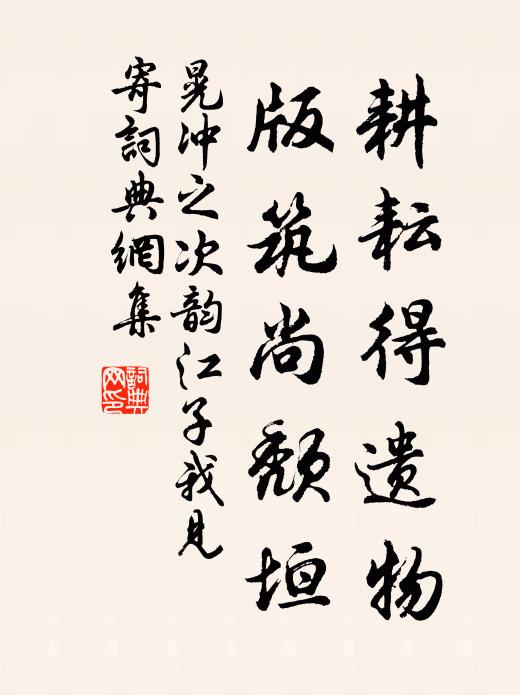 耕耘得遗物
版筑尚颓垣
晁冲之次韵江子我见
寄詞典網集
詞典网印